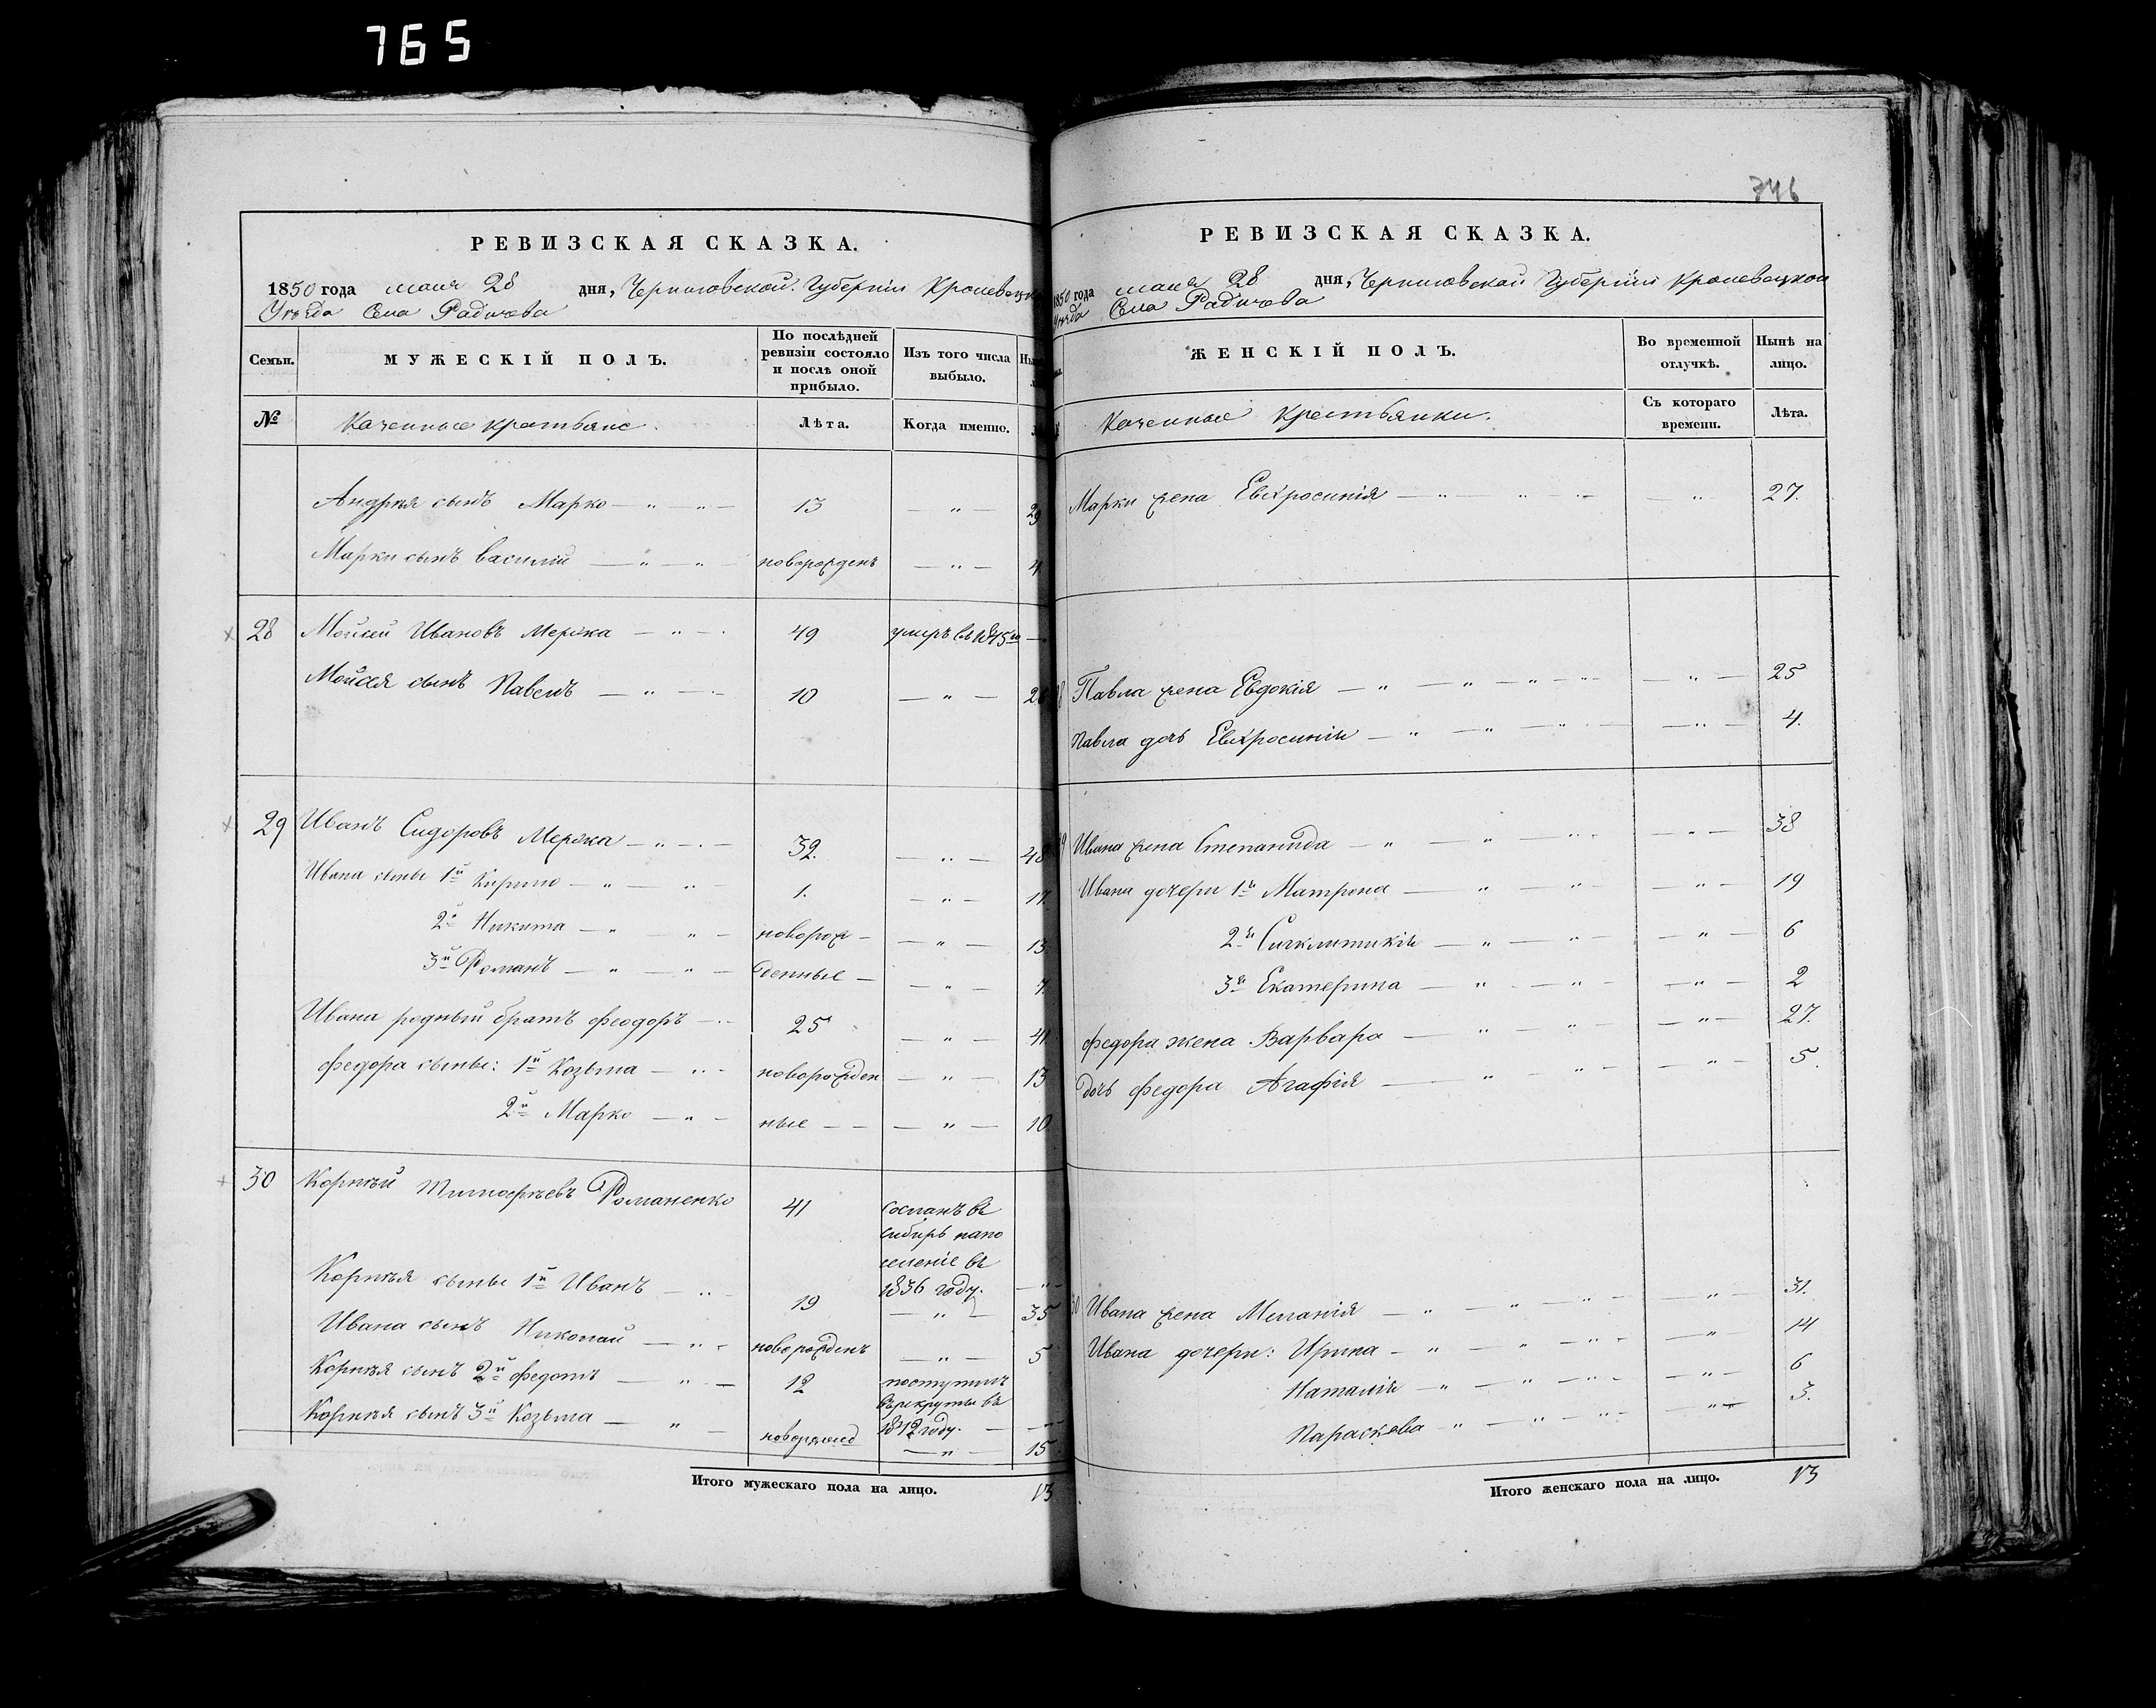 765
РЕВИЗСКАЯ СКАЗКА.
1850 года маия 28 дня, Черниговской Губерніи Кролевецк
Уезда Села Радичева
Семьи. МУЖЕСКІЙ ПОЛЪ. По послѣдней ревизіи состояло и послѣ оной прибыло. Изъ того числа выбыло.
№ Казенные крестьяне. Лѣта. Когда именно.
Андрѣя сынъ Марко — " " — 13 — " — 29
Марки сынъ Василий — " — " новорожденъ — " — 4
28 Мойсей Ивановъ Мережка — " — 49 умеръ въ 1845го —
Мойсея сынъ Павелъ — " — 10 — " — 26
29 Иванъ Сидоровъ Мережка — " — 32. — " — 48
Ивана сыны 1й Кирило — " — " — 1. — " — 17.
2й Никита — " — " — новорож — — " — 15
3й Романъ — " — " — денные — — " — 7.
Ивана родный братъ Феодоръ — 25 — " — 41
Федора сыны: 1й Козьма — " — новорожден — " — 13
2й Марко — " — ные — — — " — 10.
30 Корнѣй Тимофѣевъ Романенко 41 сосланъ въ
сибирь на по
селеніе въ
1836 году. — " —
Корнѣя сыны 1й Иванъ — " 19 — " — 35
Ивана сынъ Николай — " — новорожденъ — " — 5
Корнѣя сынъ 2й Федотъ — " — 12 поступилъ
въ рекруты въ
1842 году. — —
Корнѣя сынъ 3й Козьма — " — — " — 15
Итого мужескаго пола на лицо. 13
746
РЕВИЗСКАЯ СКАЗКА.
1850 года маия 28 дня, Черниговской Губерніи Кролевецкой
Уезда Села Радичева
ЖЕНСКІЙ ПОЛЪ. Во временной отлучкѣ. Нынѣ на лицо.
Казенные Крестьянки. Съ котораго времени. Лѣта.
Марки жена Евфросинія — " — " — — " 27.
Павла жена Евдокія — " — " — " — — " — 25
Павла дочь Евфросинія — " — " — " — — " — 4.
Ивана жена Степанида — " — " — " — — " — 38
Ивана дочери 1я Матрона — " " — — " — 19
2я Сигклитикія — " — " — — " — 6
3я Екатерина — " — " — — " — 2
Федора жена Варвара — " — " — — " — 27.
дочь Федора Агафія — " — " — — " — 5.
Ивана жена Меланія — " — " — " — — " — 31.
Ивана дочери: Ирина — " — " — " — — " — 14
Наталія — " — " — " — — " — 6
Параскева — " — " — " — " — 3.
Итого женскаго пола на лицо. 13